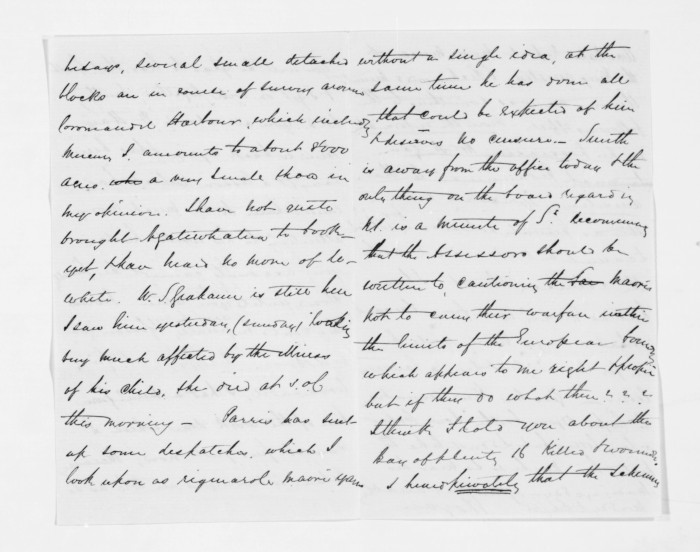 he says, several small detached
blocks are in course of survey around
Coromandel Harbour, which including
Mercury I. amounts to about 8000
acres. a very small show in
my opinion. I have not quite
brought Ngatiwhatua to book
yet, & have heard no more of Te-
wheta. W. S. Grahame is still here
I saw him yesterday, (sunday) looking
very much affected by the illness
of his child, she died at 5. oC
this morning — Parris has sent
up some despatches, which I
look upon as rigmarole maori yarns
without a single idea, at the
same time he has done all
that could be expected of him
& deserves no censure. — Smith
is away from the office today & the
only thing on the board regarding
is a minute of Sd. recommending
that the Assessors should be
written to, cautioning the Maories
not to carry their warfare within
the limits of the European boundy
which appears to me right & proper
but if they do what then ? ? ?
I think I told you about the
Bay of Plenty 16 killed & wounded.
I heard privately that the